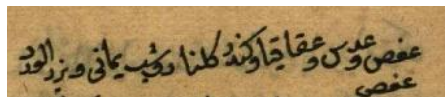 عفص وعدس وعقاقيا وكندر كلنار وشب يماني وبزر الورد
عفص